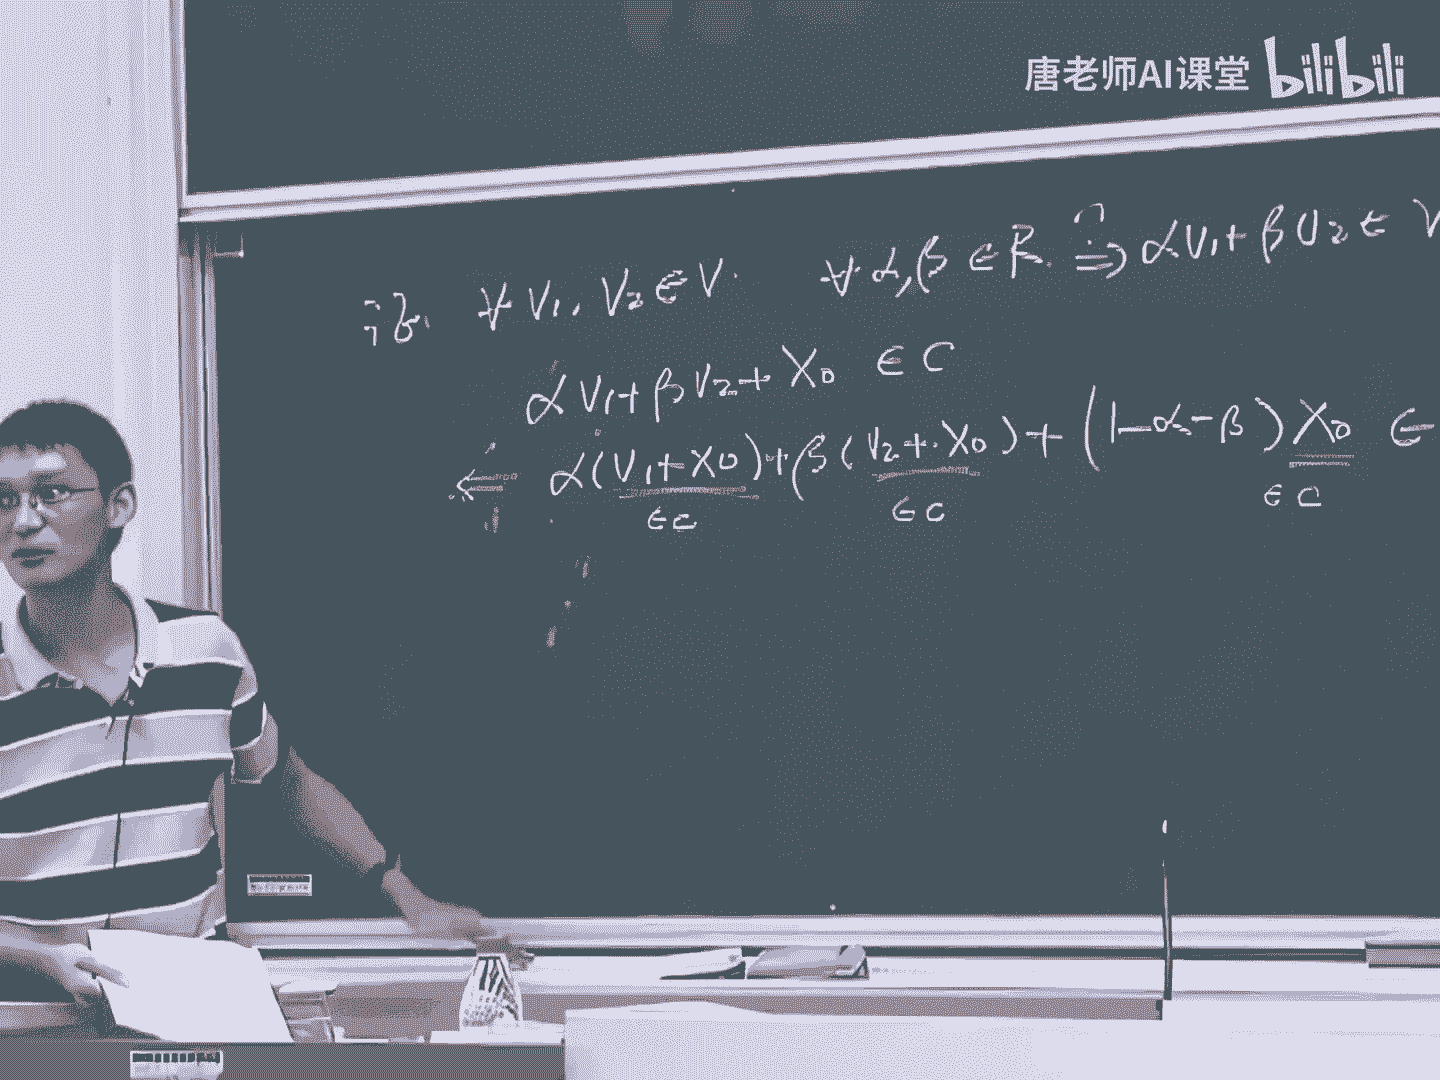 唐老师AI课堂 bilibili
证. ∀ V₁, V₂ ∈ V. ∀ α, β ∈ R. ⇒ αV₁ + βV₂ ∈ V
αV₁ + βV₂ + X₀ ∈ C
⇐ α(V₁ + X₀) + β(V₂ + X₀) + (1-α-β)X₀ ∈
∈C ∈C ∈C